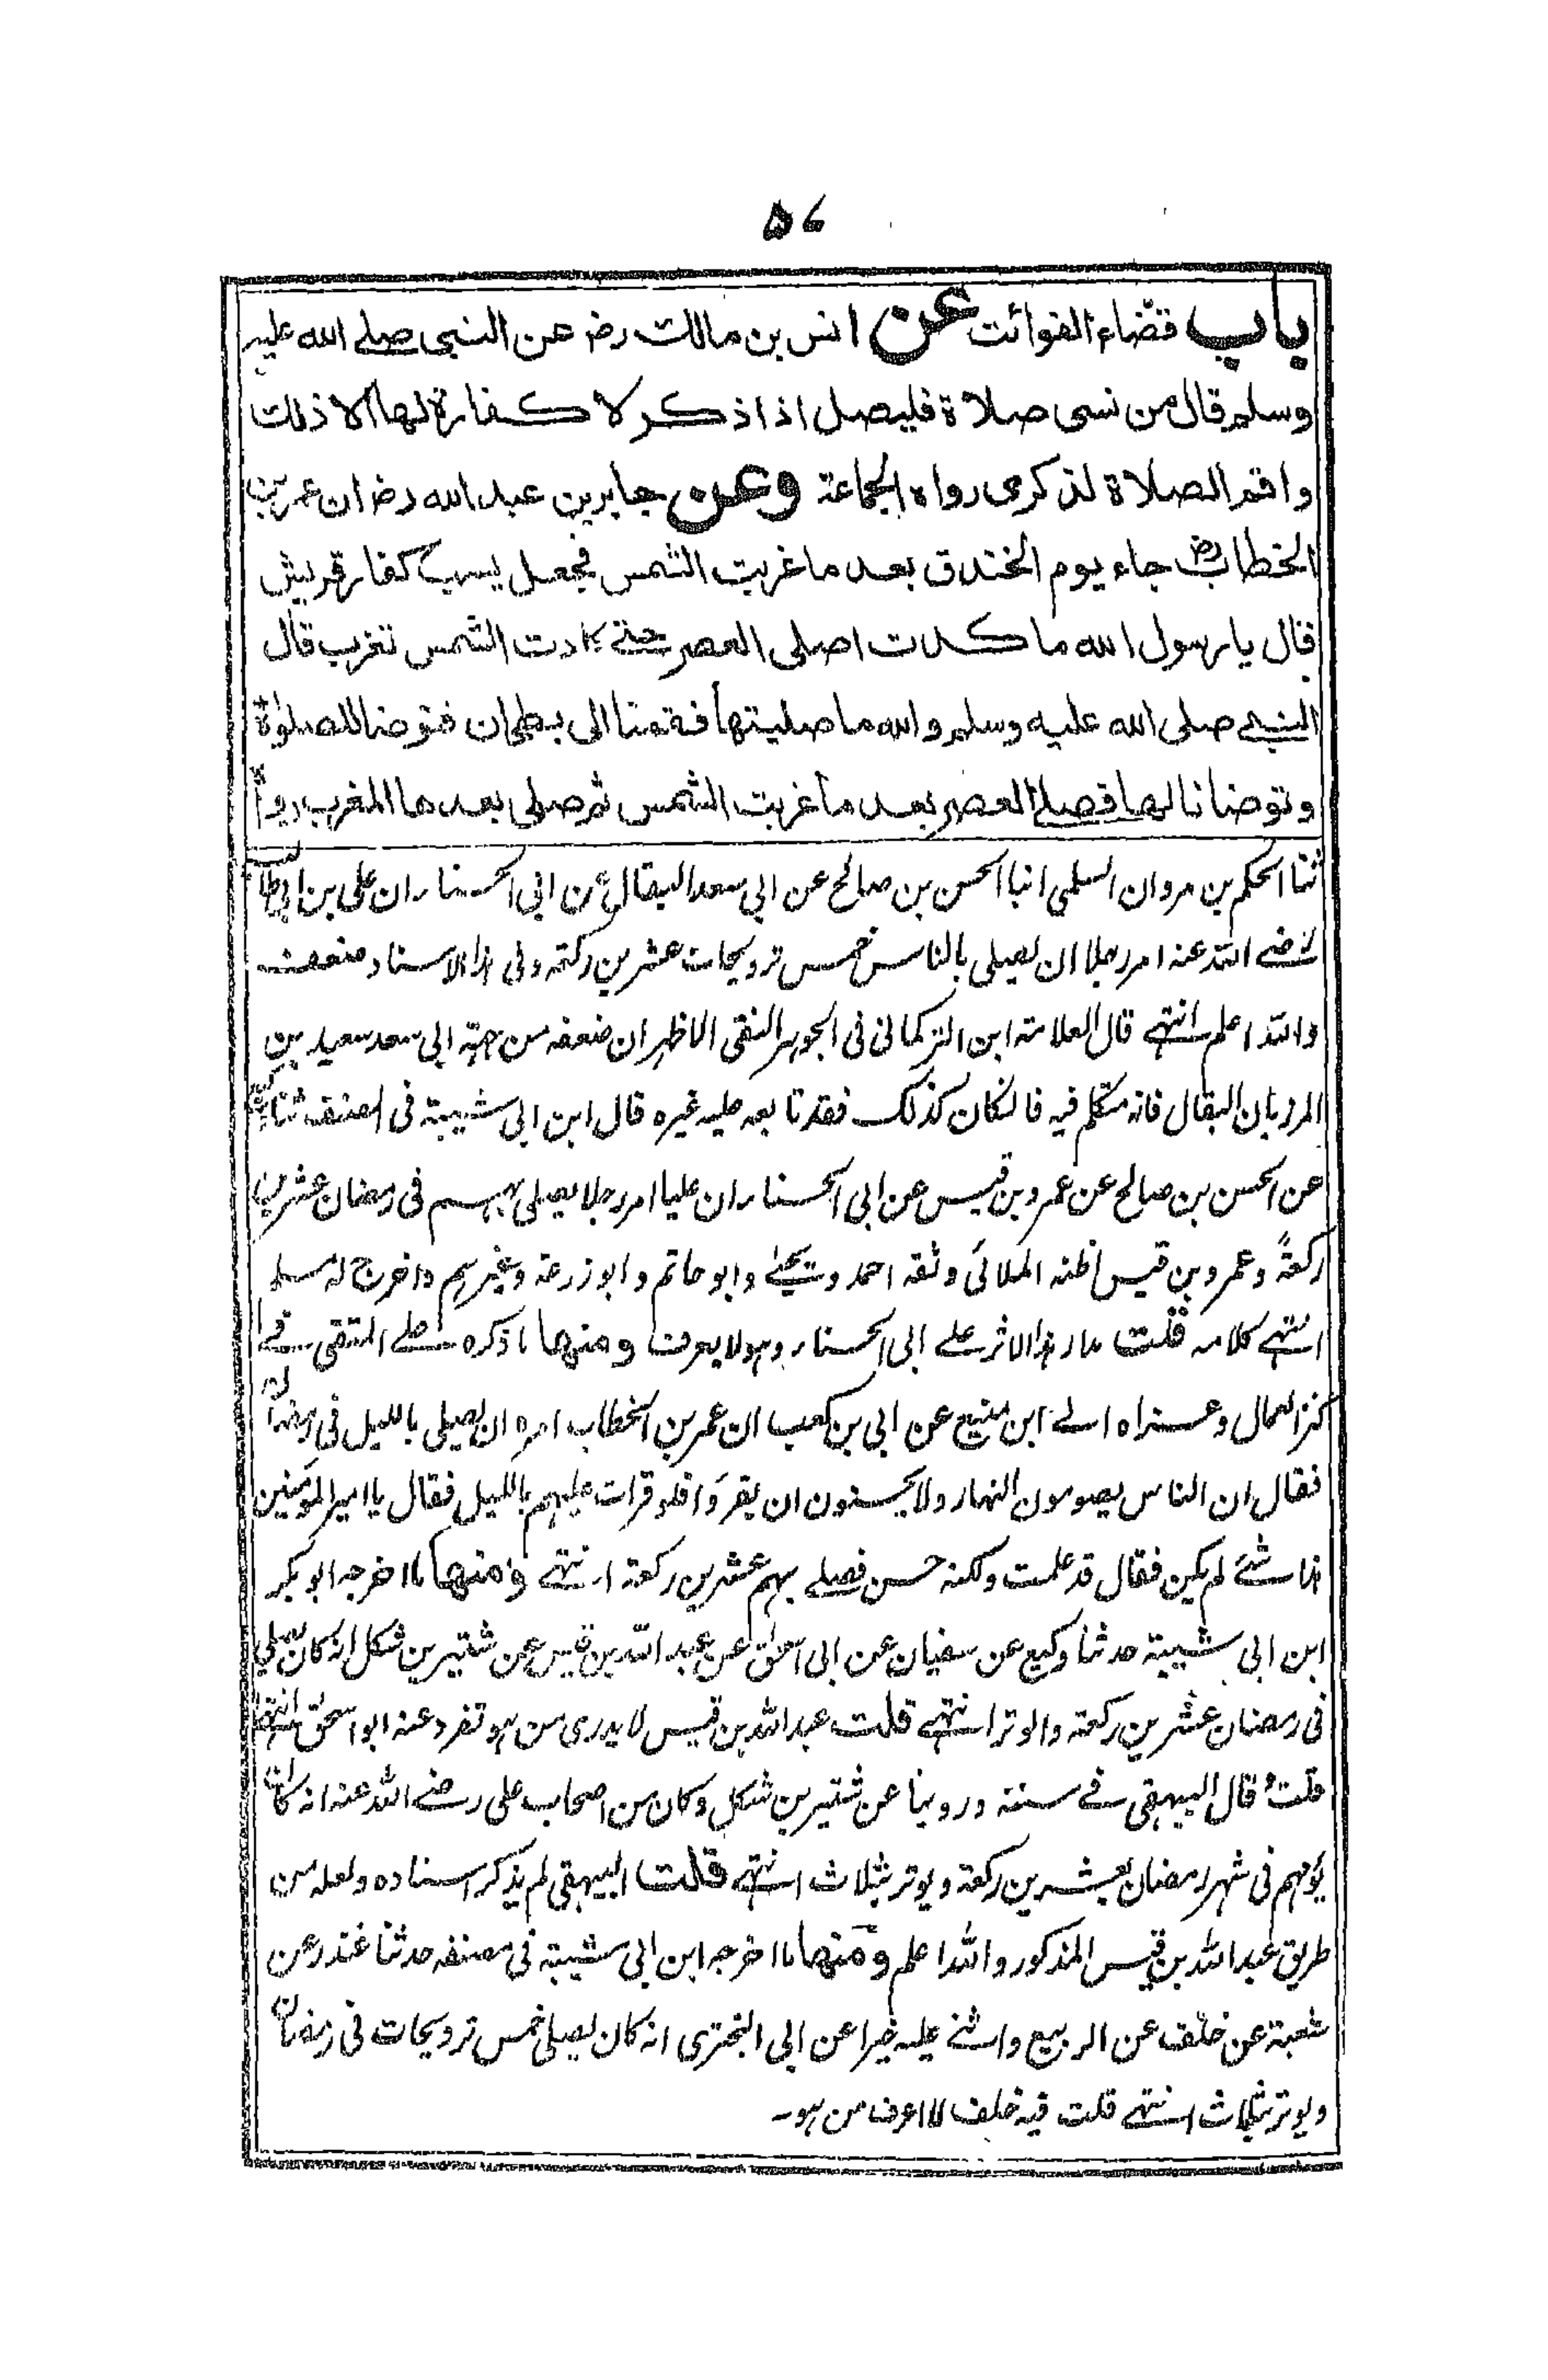 ۵۷
باب قضاء الفوائت عن انس بن مالك رض عن النبي صلى الله عليه
وسلم قال من نسى صلاة فليصل اذا ذكر لا كفارة لها الا ذلك
واقم الصلاة لذكرى رواه الجماعة وعن جابر بن عبد الله رض ان عمر بن
الخطاب رض جاء يوم الخندق بعد ما غربت الشمس فجعل يسب كفار قريش
قال يا رسول الله ما كدت اصلى العصر حتى كادت الشمس تغرب قال
النبي صلى الله عليه وسلم والله ما صليتها فقمنا الى بطحان فتوضا للصلوٰة
وتوضانا لها فصلى العصر بعد ما غربت الشمس ثم صلى بعدها المغرب رواه
ثنا الحكم بن مروان السلمي انبا الحسن بن صالح عن ابي سعد البقال عن ابي الحسناء ان علي بن ابي طالب
رضي الله عنه امر رجلا ان يصلي بالناس خمس ترويحات عشرين ركعة وفي هذا الاسناد ضعف
والله اعلم انتهى قال العلامة ابن التركماني في الجوهر النقي الاظهر ان ضعفه من جهة ابي سعد سعيد بن
المرزبان البقال فانه متكلم فيه فان كان كذلك فقد تابعه عليه غيره قال ابن ابي شيبة في المصنف ثنا
عن الحسن بن صالح عن عمرو بن قيس عن ابي الحسناء ان عليا امر رجلا يصلي بهم في رمضان عشرين
ركعةً وعمرو بن قيس اظنه الملائي وثقه احمد ويحيى وابو حاتم وابو زرعة وغيرهم واخرج له مسلم
انتهى كلامه قلت مدار هذا الاثر على ابي الحسناء وهو لا يعرف ومنها ما ذكره على المتقي في
كنز العمال وعزاه الى ابن منيع عن ابي بن كعب ان عمر بن الخطاب امره ان يصلي بالليل في رمضان
فقال ان الناس يصومون النهار ولا يحسنون ان يقرؤا فلو قرات عليهم بالليل فقال يا امير المؤمنين
هذا شئ لم يكن فقال قد علمت ولكنه حسن فصلى بهم عشرين ركعة انتهى ومنها ما اخرجه ابو بكر
ابن ابي شيبة حدثنا وكيع عن سفيان عن ابي اسحٰق عن عبد الله بن قيس عن شتير بن شكل انه كان يصلي
في رمضان عشرين ركعة والوتر انتهى قلت عبد الله بن قيس لا يدرى من هو تفرد عنه ابو اسحٰق انتهى
قلت قال البيهقي في سننه وروينا عن شتير بن شكل وكان من اصحاب علي رضى الله عنه انه كان
يؤمهم في شهر رمضان بعشرين ركعة ويوتر بثلاث انتهى قلت البيهقي لم يذكر اسناده ولعله من
طريق عبد الله بن قيس المذكور والله اعلم ومنها ما اخرجه ابن ابي شيبة في مصنفه حدثنا غندر عن
شعبة عن خلف عن الربيع واثنى عليه خيرا عن ابي البختري انه كان يصلي خمس ترويحات في رمضان
ويوتر بثلاث انتهى قلت فيه خلف لا اعرف من هو-